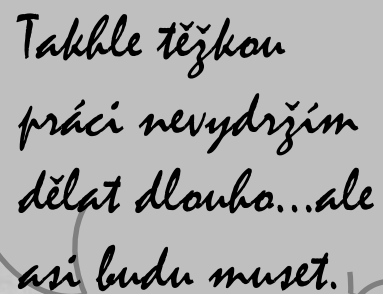 Takhle těžkou
práci nevydržím
dělat dlouho...ale
asi budu muset.